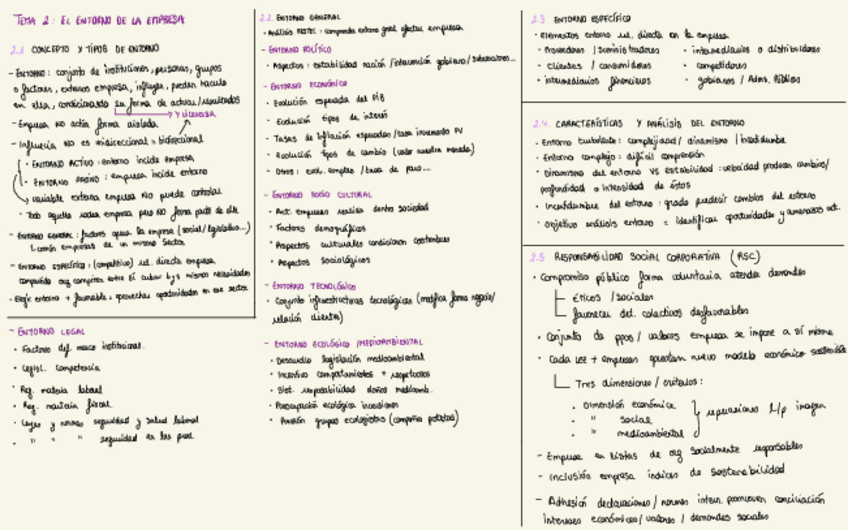 TEMA 2: EL ENTORNO DE LA EMPRESA
2.1 CONCEPTO Y TIPOS DE ENTORNO
- ENTORNO: conjunto de instituciones, personas, grupos
o factores, externos empresa, influyen, pueden hacerlo
en ella, condicionando su forma de actuar/resultados
→ Y VICEVERSA
- Empresa NO actúa forma aislada
- Influencia NO es unidireccional = bidireccional
· ENTORNO ACTIVO: entorno incide empresa
- ENTORNO PASIVO: empresa incide entorno
→ variable externa empresa NO puede controlar
· Todo aquello rodea empresa pero NO forma parte de ella
- ENTORNO GENERAL: factores opera la empresa (social/legislativo...)
↳ común empresas de un mismo sector
- ENTORNO ESPECÍFICO: (competitivo) rel. directa empresa
compartido org compiten entre sí cubrir mismas necesidades
· Elegir entorno + favorable = aprovechar oportunidades en ese sector
- ENTORNO LEGAL
· Factores def. marco institucional.
· Legisl. competencia
· Reg. materia laboral
· Reg. materia fiscal
· Leyes y normas seguridad y salud laboral
· " " " seguridad en los prod.
2.2. ENTORNO GENERAL
· Análisis PESTEL: comprender entorno gral afectan empresa
- ENTORNO POLÍTICO
· Aspectos: estabilidad nación/intervención gobierno/subvenciones...
- ENTORNO ECONÓMICO
· Evolución esperada del PIB
· Evolución tipos de interés
· Tasas de inflación esperadas/tasa incremento PV
· Evolución tipos de cambio (valor nuestra moneda)
· Otros: evol. empleo / tasa de paro...
- ENTORNO SOCIO CULTURAL
· Act. empresa realiza dentro sociedad
· Factores demográficos
· Aspectos culturales condicionan costumbres
· Aspectos sociológicos
- ENTORNO TECNOLÓGICO
· Conjunto infraestructuras tecnológicas (modifica forma negocio/
relación clientes)
- ENTORNO ECOLÓGICO /MEDIOAMBIENTAL
· Desarrollo legislación medioambiental
· Incentivo comportamientos + respetuosos
· Sist. responsabilidad daños medioamb.
· Preocupación ecológica inversiones
· Presión grupos ecologistas (compañía petrolera)
2.3 ENTORNO ESPECÍFICO
· Elementos entorno rel. directa en la empresa
· Proveedores / suministradores
· intermediarios o distribuidores
· Clientes / consumidores
· competidores
· intermediarios financieros
· gobiernos / Adms. Públicas
2.4. CARACTERÍSTICAS Y ANÁLISIS DEL ENTORNO
· Entorno turbulento: complejidad/ dinamismo / incertidumbre
· Entorno complejo: difícil comprensión
· Dinamismo del entorno VS estabilidad: velocidad producen cambios/
profundidad o intensidad de éstos
· Incertidumbre del entorno: grado predecir cambios del entorno
· Objetivo análisis entorno = identificar oportunidades y amenazas
2.5 RESPONSABILIDAD SOCIAL CORPORATIVA (RSC)
· Compromiso público forma voluntaria atender demandas
éticas /sociales
favorecer def. colectivos desfavorables
· Conjunto de ppos/ valores empresa se impone a sí misma
· Cada vez + empresas apuestan nuevo modelo económico sostenible
Tres dimensiones/ criterios:
· Dimensión económica
· " social
· " medioambiental
} repercusiones l/p imagen
- Empresa en listas de org socialmente responsables
- Inclusión empresa índices de sostenibilidad
- Adhesión declaraciones/ normas intern. promueven conciliación
Intereses económicos/ valores / demandas sociales